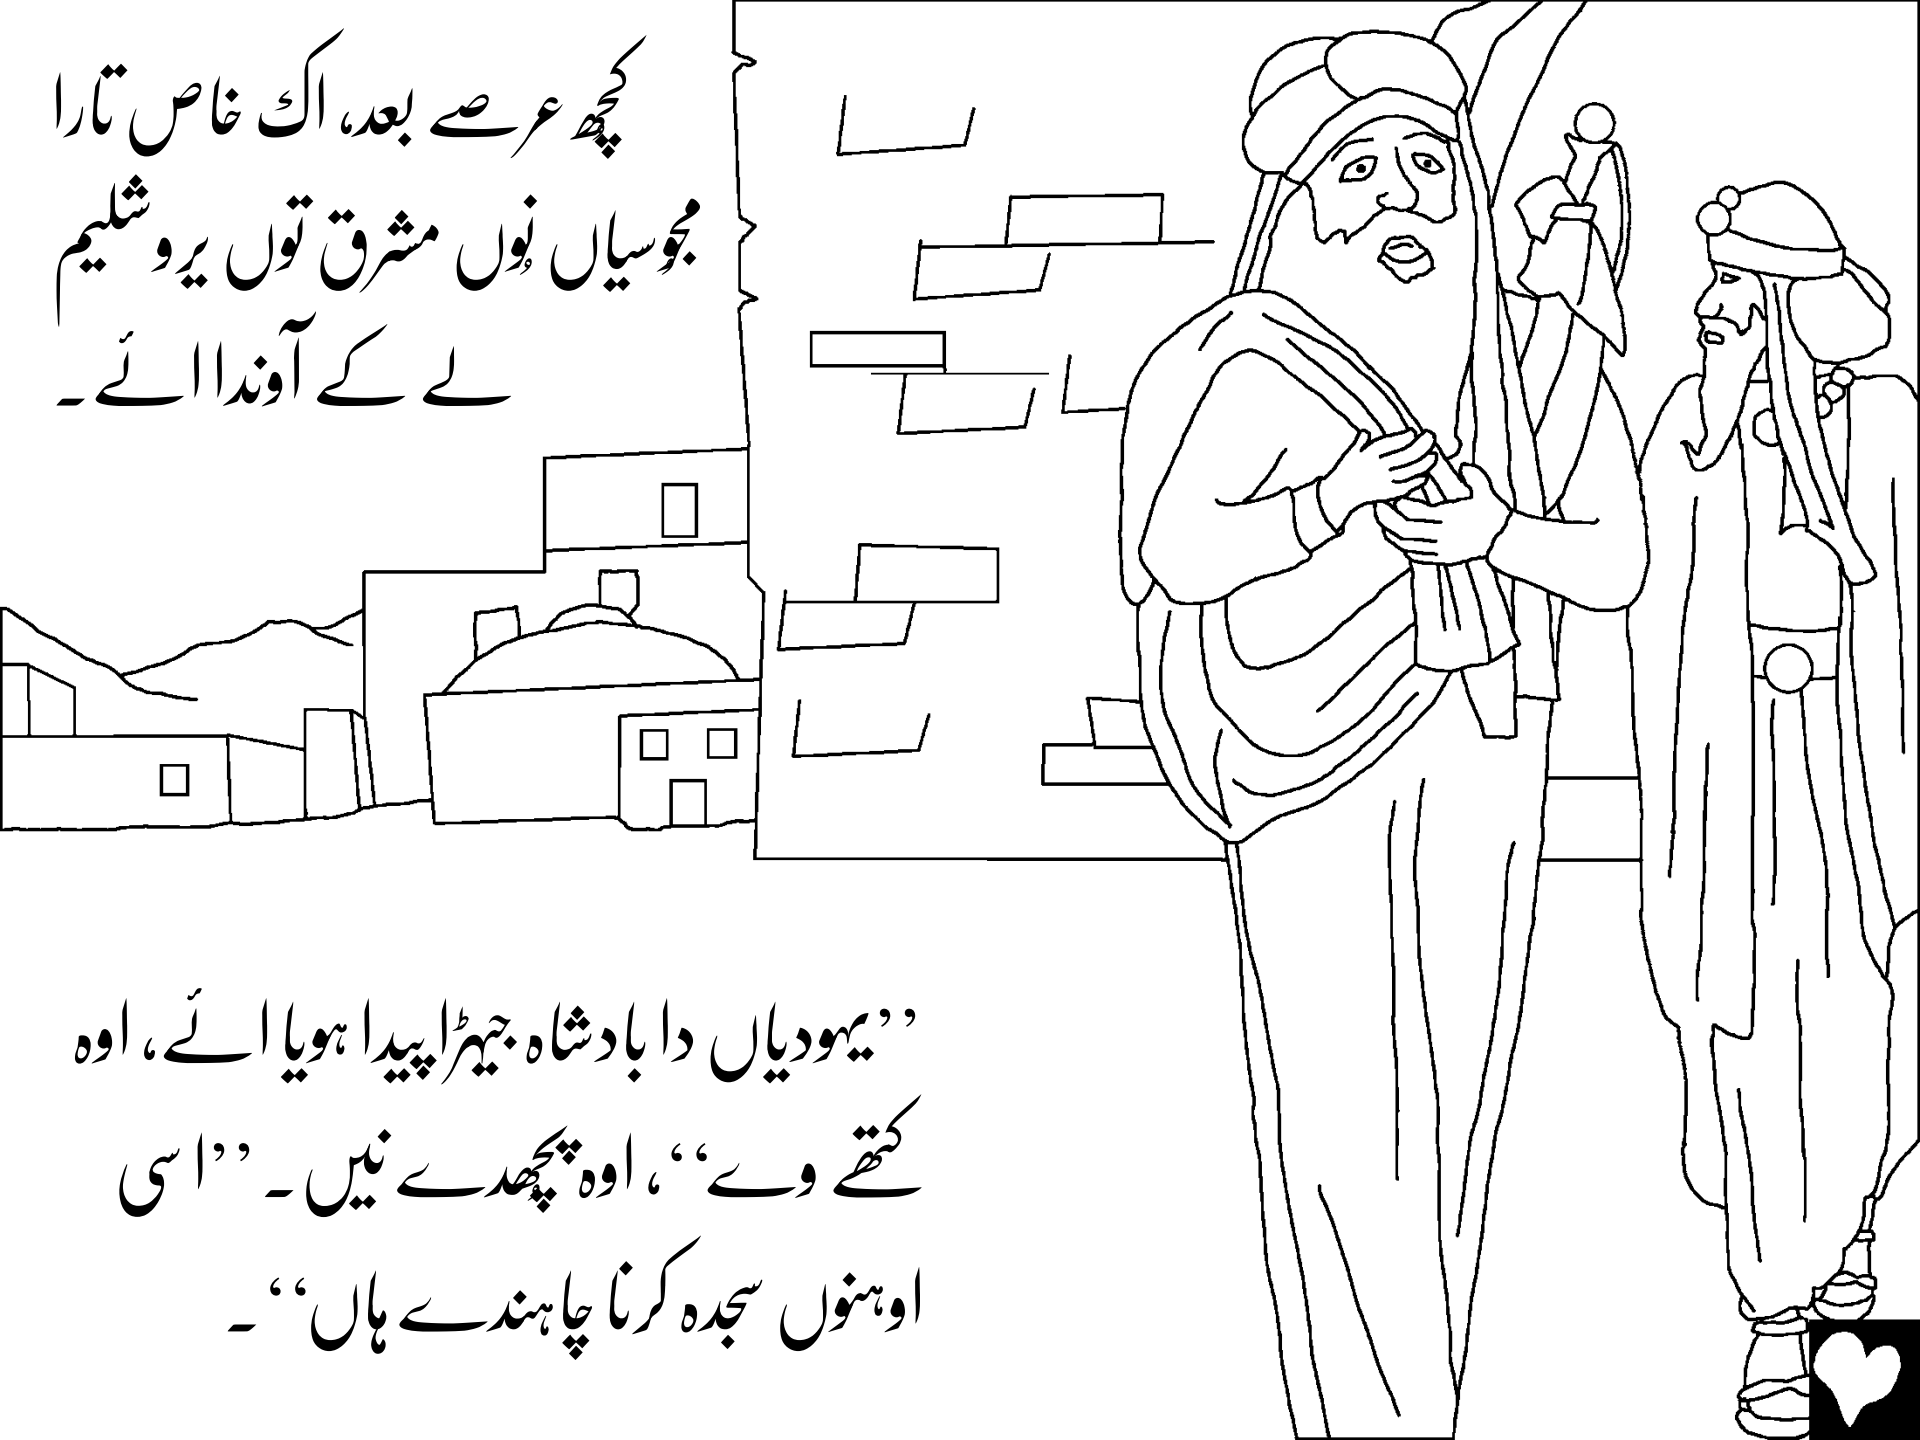 کچھ عرصے بعد، اک خاص تارا
مجوسیاں نُوں مشرق توں یروشلیم
لے کے آوندا اائے۔
’’یہودیاں دا بادشاہ جیہڑا پیدا ہویا اائے، اوہ
کتھے وے‘‘، اوہ پچھُدے نیں۔ ’’اسی
اوہنوں سجدہ کرنا چاہندے ہاں‘‘۔